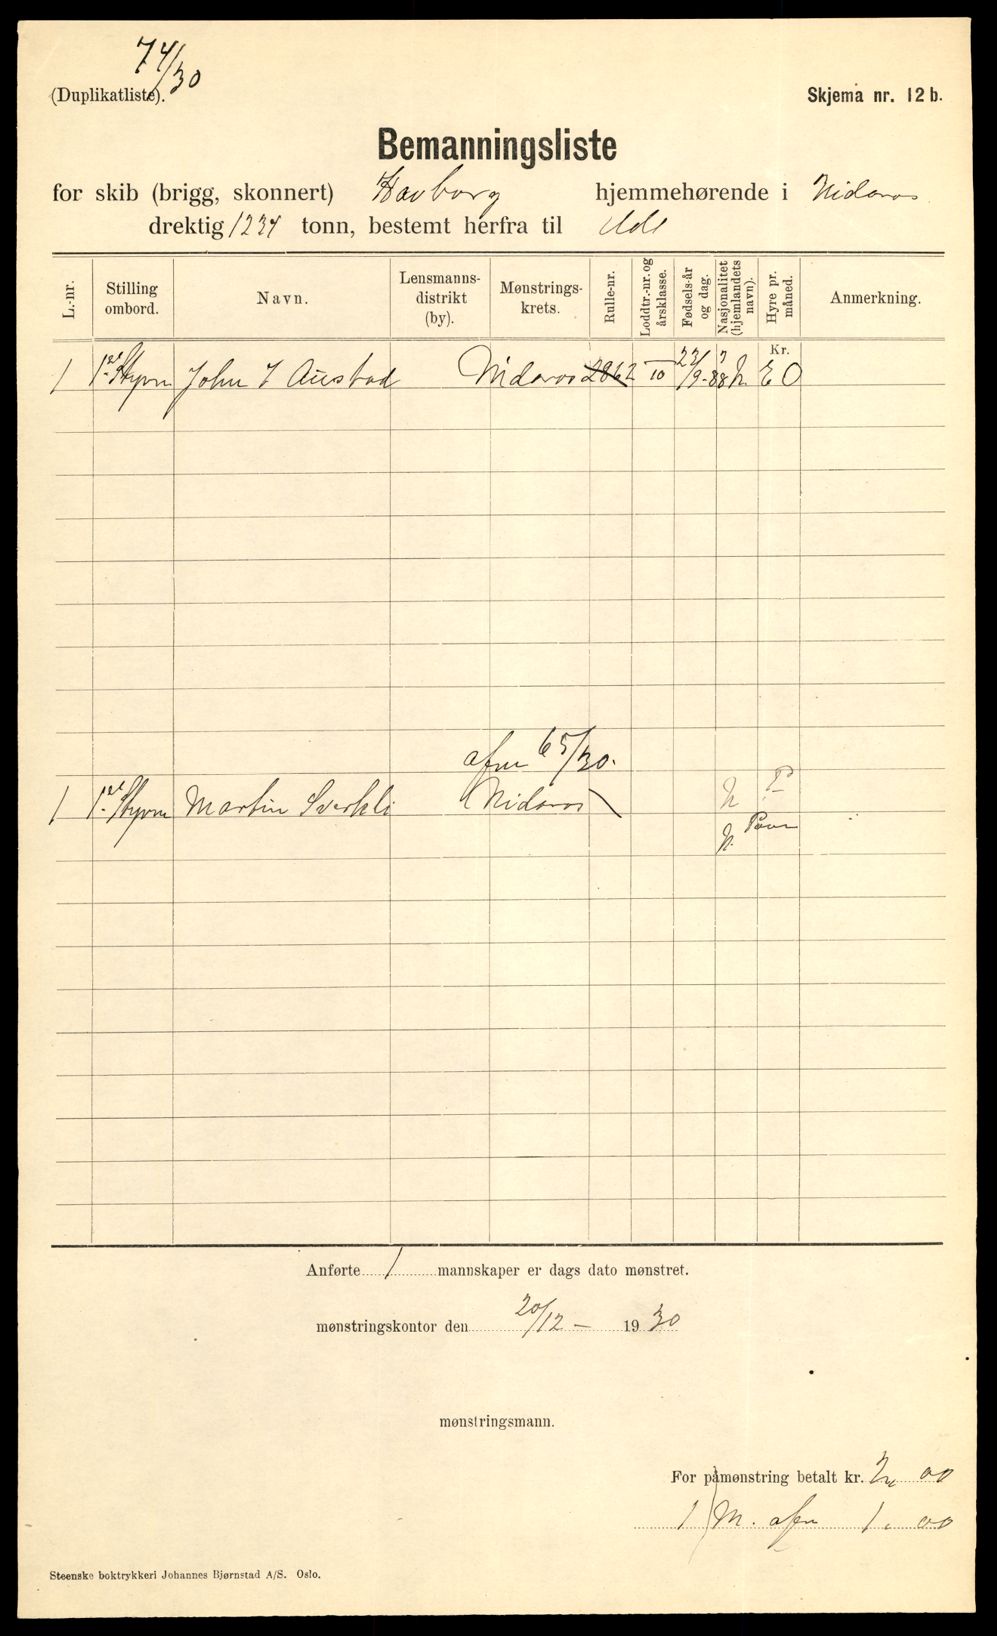 74/30
(Duplikatliste). Skjema nr. 12 b.
Bemanningsliste
for skib (brigg, skonnert) Havborg hjemmehørende i Nidaros
drektig 1234 tonn, bestemt herfra til Udl
L.-nr. Stilling ombord. Navn. Lensmanns-distrikt (by). Mønstrings-krets. Rulle-nr. Loddtr.-nr. og årsklasse. Fødsels-år og dag. Nasjonalitet (hjemlandets navn). Hyre pr. måned. Anmerkning.
Kr.
1 1ste Styrm John I Austad Nidaros 2862 10 22/9-88 N. E O
afm 65/30.
1 1ste Styrm Martin Sverkli Nidaros N P
N. Pam
Anførte 1 mannskaper er dags dato mønstret.
mønstringskontor den 20/12 – 1930
mønstringsmann.
For påmønstring betalt kr. 2, 00
1 M. afm 1. 00
Steenske boktrykkeri Johannes Bjørnstad A/S. Oslo.